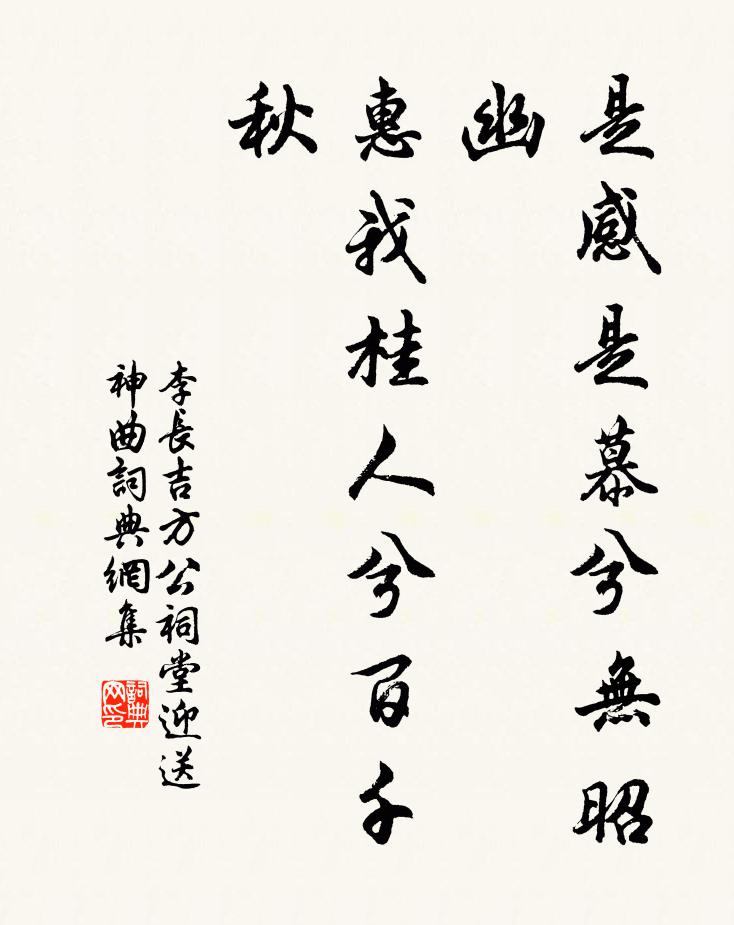 是感是慕兮無昭
幽
惠我桂人兮百千
秋
李長吉方公祠堂迎送
神曲詞典網集
詞典
网印